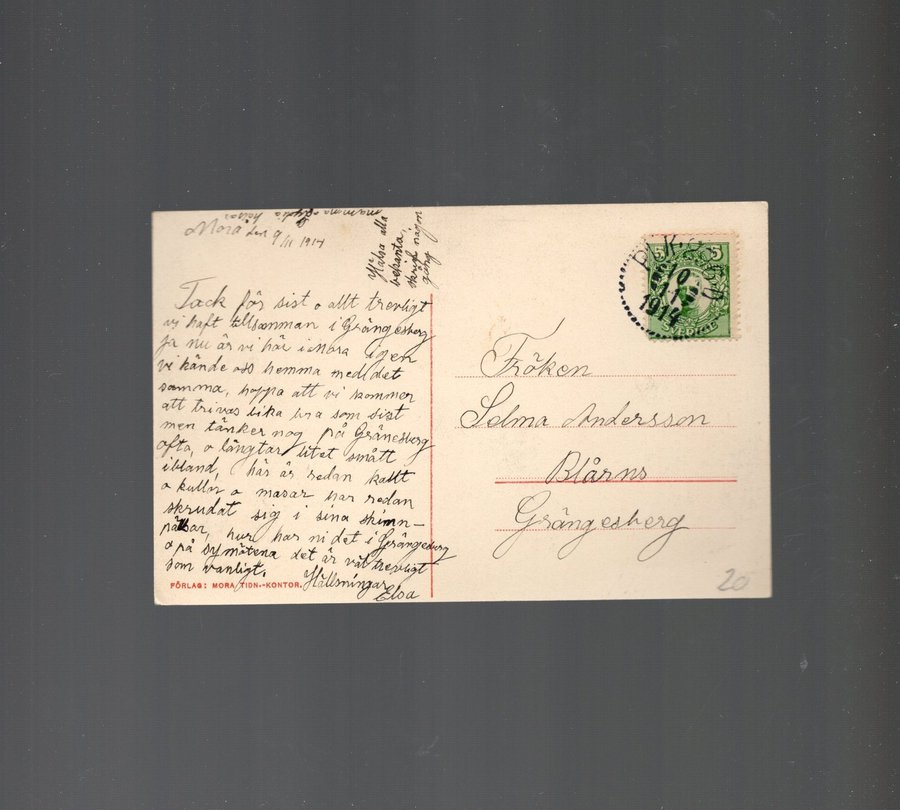 mamma o Lydia hälsar
Mora den 9/11 1914
Hälsa alla
bekanta,
skrif någon
gång
Tack för sist o allt trevligt
vi haft tillsamman i Grängesberg
ja nu är vi här i Mora igen
vi kände oss hemma med det
samma, hoppa att vi kommer
att trivas lika bra som sist
men tänker nog på Gränesberg
ofta, o längtar litet smått
ibland, här är redan kallt
o kullor o masar har redan
skrudat sig i sina skinn-
pälsar, hur har ni det i Grängesberg
o på symötena det är väl trevligt
som vanligt.
Hällsningar
Elsa
FÖRLAG: MORA TIDN.-KONTOR.
5 5
10
11
1914
SVERIGE
Fröken
Selma Andersson
Blårns
Grängesberg
20